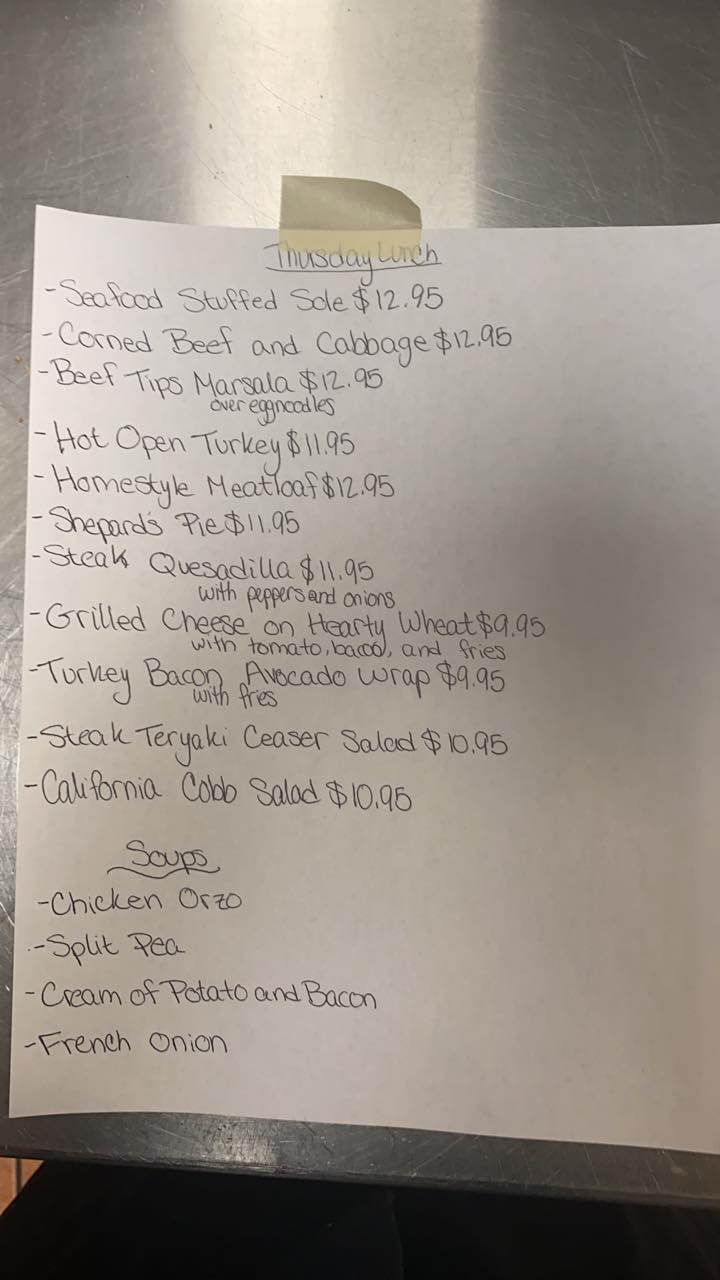 Thursday Lunch
- Seafood Stuffed Sole $12.95
- Corned Beef and Cabbage $12.95
- Beef Tips Marsala $12.95
over eggnoodles
- Hot Open Turkey $11.95
- Homestyle Meatloaf $12.95
- Shepard's Pie $11.95
- Steak Quesadilla $11.95
with peppers and onions
- Grilled Cheese on Hearty Wheat $9.95
with tomato, bacon, and fries
- Turkey Bacon Avocado Wrap $9.95
with fries
- Steak Teryaki Ceaser Salad $10.95
- California Cobb Salad $10.95
Soups
- Chicken Orzo
- Split Pea
- Cream of Potato and Bacon
- French Onion